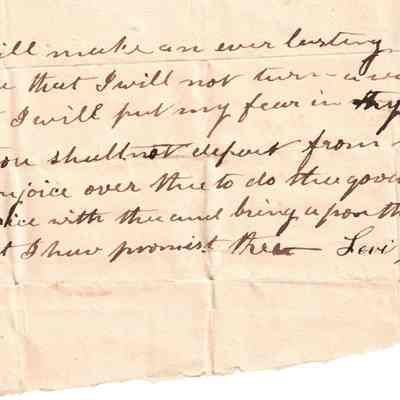 ill make an ever lasting
that I will not turn awa
I will put my fear in thy
ou shall not depart from
joice over thee to do thee good
oice with thee and bring upon th
t I have promist thee — Levi